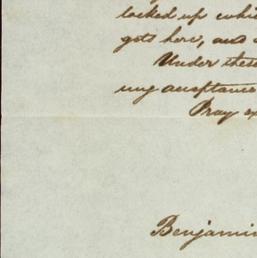 locked up whi
gets here, and
Under these
my acceptance
Pray ex
Benjamin